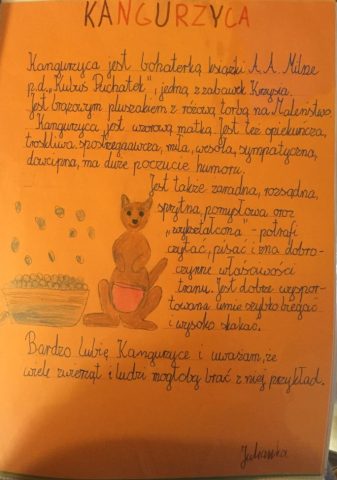 KANGURZYCA
Kangurzyca jest bohaterką książki A.A. Milne
p.d. „Kubuś Puchatek", jedną z zabawek Krzysia.
Jest brązowym pluszakiem z różową torbą na Maleństwo.
Kangurzyca jest wzorową matką. Jest też opiekuńcza,
troskliwa, spostrzegawcza, miła, wesoła, sympatyczna,
dowcipna, ma duże poczucie humoru.
Jest także zaradna, rozsądna,
sprytna, pomysłowa oraz
„wykształcona" - potrafi
czytać, pisać i zna dobro-
czynne właściwości
tranu. Jest dobrze wyspor-
towana umie szybko biegać
i wysoko skakać.
Bardzo lubię Kangurzycę i uważam, że
wiele zwierząt i ludzi mogłoby brać z niej przykład.
Julianka